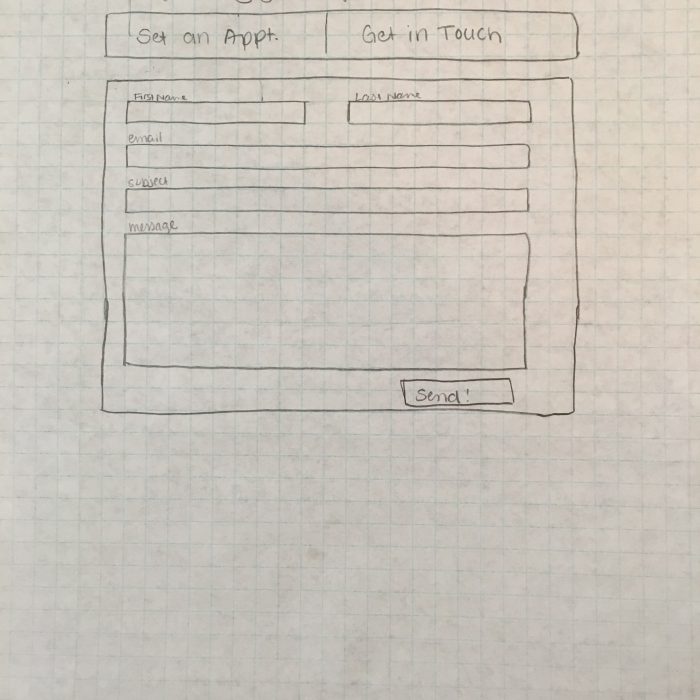 Set an Appt. Get in Touch
First Name Last Name
email
subject
message
Send!